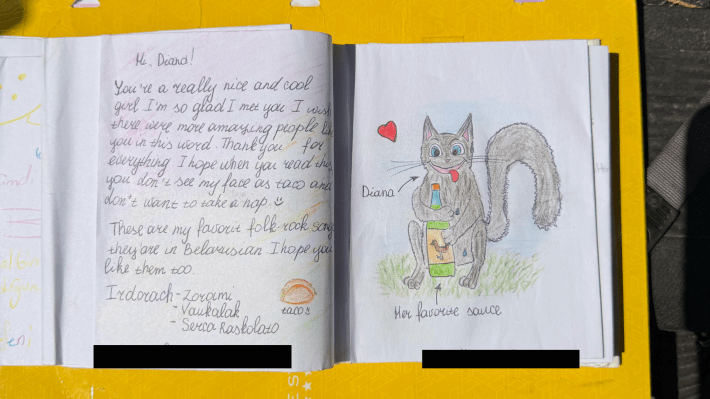 Hi, Diana!
You're a really nice and cool
girl I'm so glad I met you I wish
there were more amazing people like
you in this word. Thank you for
everything I hope when you read this
you don't see my face as taco and
don't want to take a nap.
These are my favorit folk-rock song
they are in Belarusian I hope you
like them too.
Irdorach - Zorami
- Vaukalak
- Serca Raskolato
tacos
Diana
Her favorite sauce